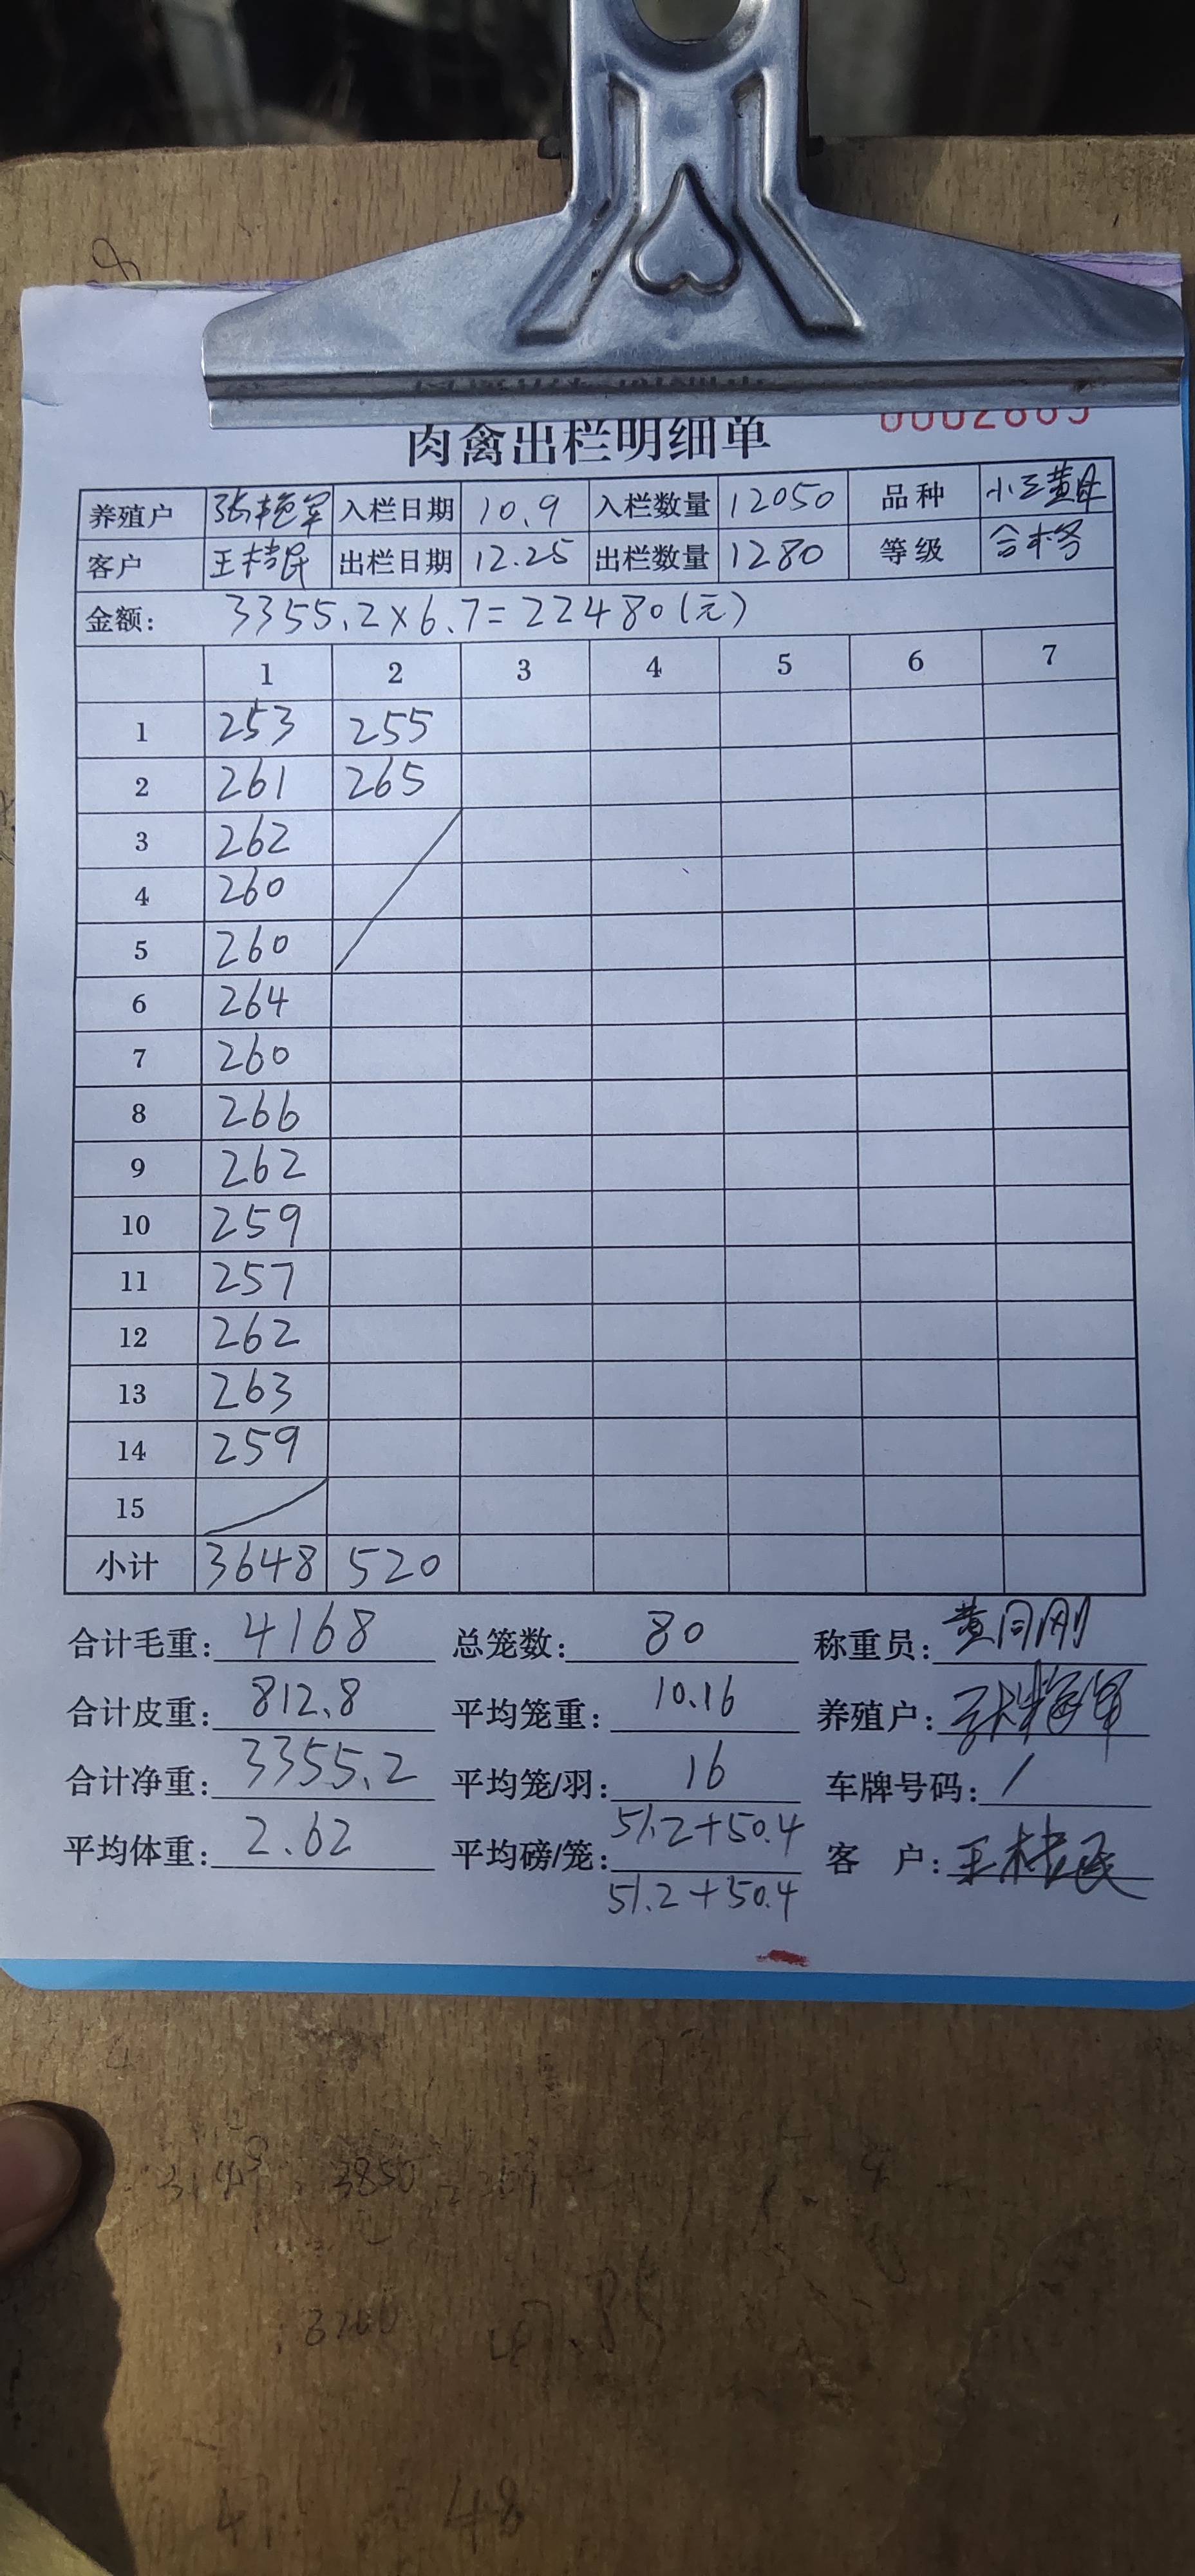 0002865
肉禽出栏明细单
养殖户 张艳军 入栏日期 10.9 入栏数量 12050 品种 小三黄母
客户 王桔民 出栏日期 12.25 出栏数量 1280 等级 合格
金额: 3355.2×6.7=22480(元)
1 2 3 4 5 6 7
1 253 255
2 261 265
3 262
4 260
5 260
6 264
7 260
8 266
9 262
10 259
11 257
12 262
13 263
14 259
15
小计 3648 520
合计毛重: 4168 总笼数: 80 称重员: 黄同刚
合计皮重: 812.8 平均笼重: 10.16 养殖户:
合计净重: 3355.2 平均笼/羽: 16 车牌号码: /
平均体重: 2.62 平均磅/笼: 51.2+50.4 客 户: 王桔民
51.2+50.4